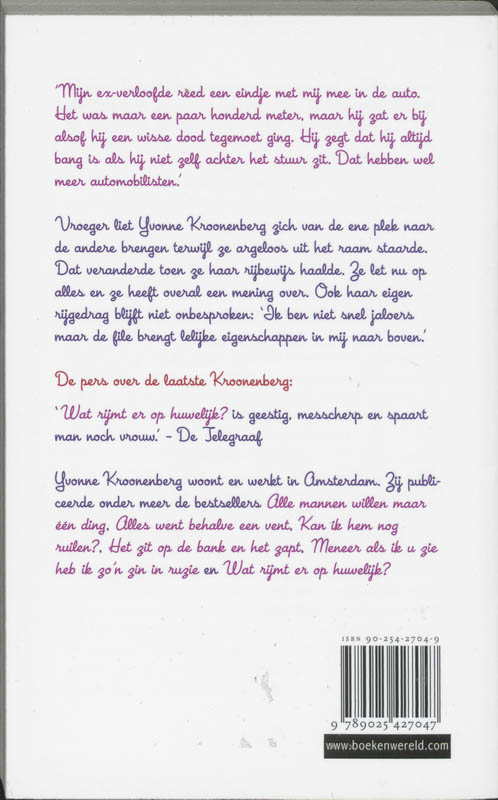 'Mijn ex-verloofde reed een eindje met mij mee in de auto.
Het was maar een paar honderd meter, maar hij zat er bij
alsof hij een wisse dood tegemoet ging. Hij zegt dat hij altijd
bang is als hij niet zelf achter het stuur zit. Dat hebben wel
meer automobilisten.'
Vroeger liet Yvonne Kroonenberg zich van de ene plek naar
de andere brengen terwijl ze argeloos uit het raam staarde.
Dat veranderde toen ze haar rijbewijs haalde. Ze let nu op
alles en ze heeft overal een mening over. Ook haar eigen
rijgedrag blijft niet onbesproken: 'Ik ben niet snel jaloers
maar de file brengt lelijke eigenschappen in mij naar boven.'
De pers over de laatste Kroonenberg:
'Wat rijmt er op huwelijk? is geestig, messcherp en spaart
man noch vrouw.' – De Telegraaf
Yvonne Kroonenberg woont en werkt in Amsterdam. Zij publi-
ceerde onder meer de bestsellers Alle mannen willen maar
één ding, Alles went behalve een vent, Kan ik hem nog
ruilen?, Het zit op de bank en het zapt, Meneer als ik u zie
heb ik zo'n zin in ruzie en Wat rijmt er op huwelijk?
ISBN 90-254-2704-9
9 789025 427047
www.boekenwereld.com